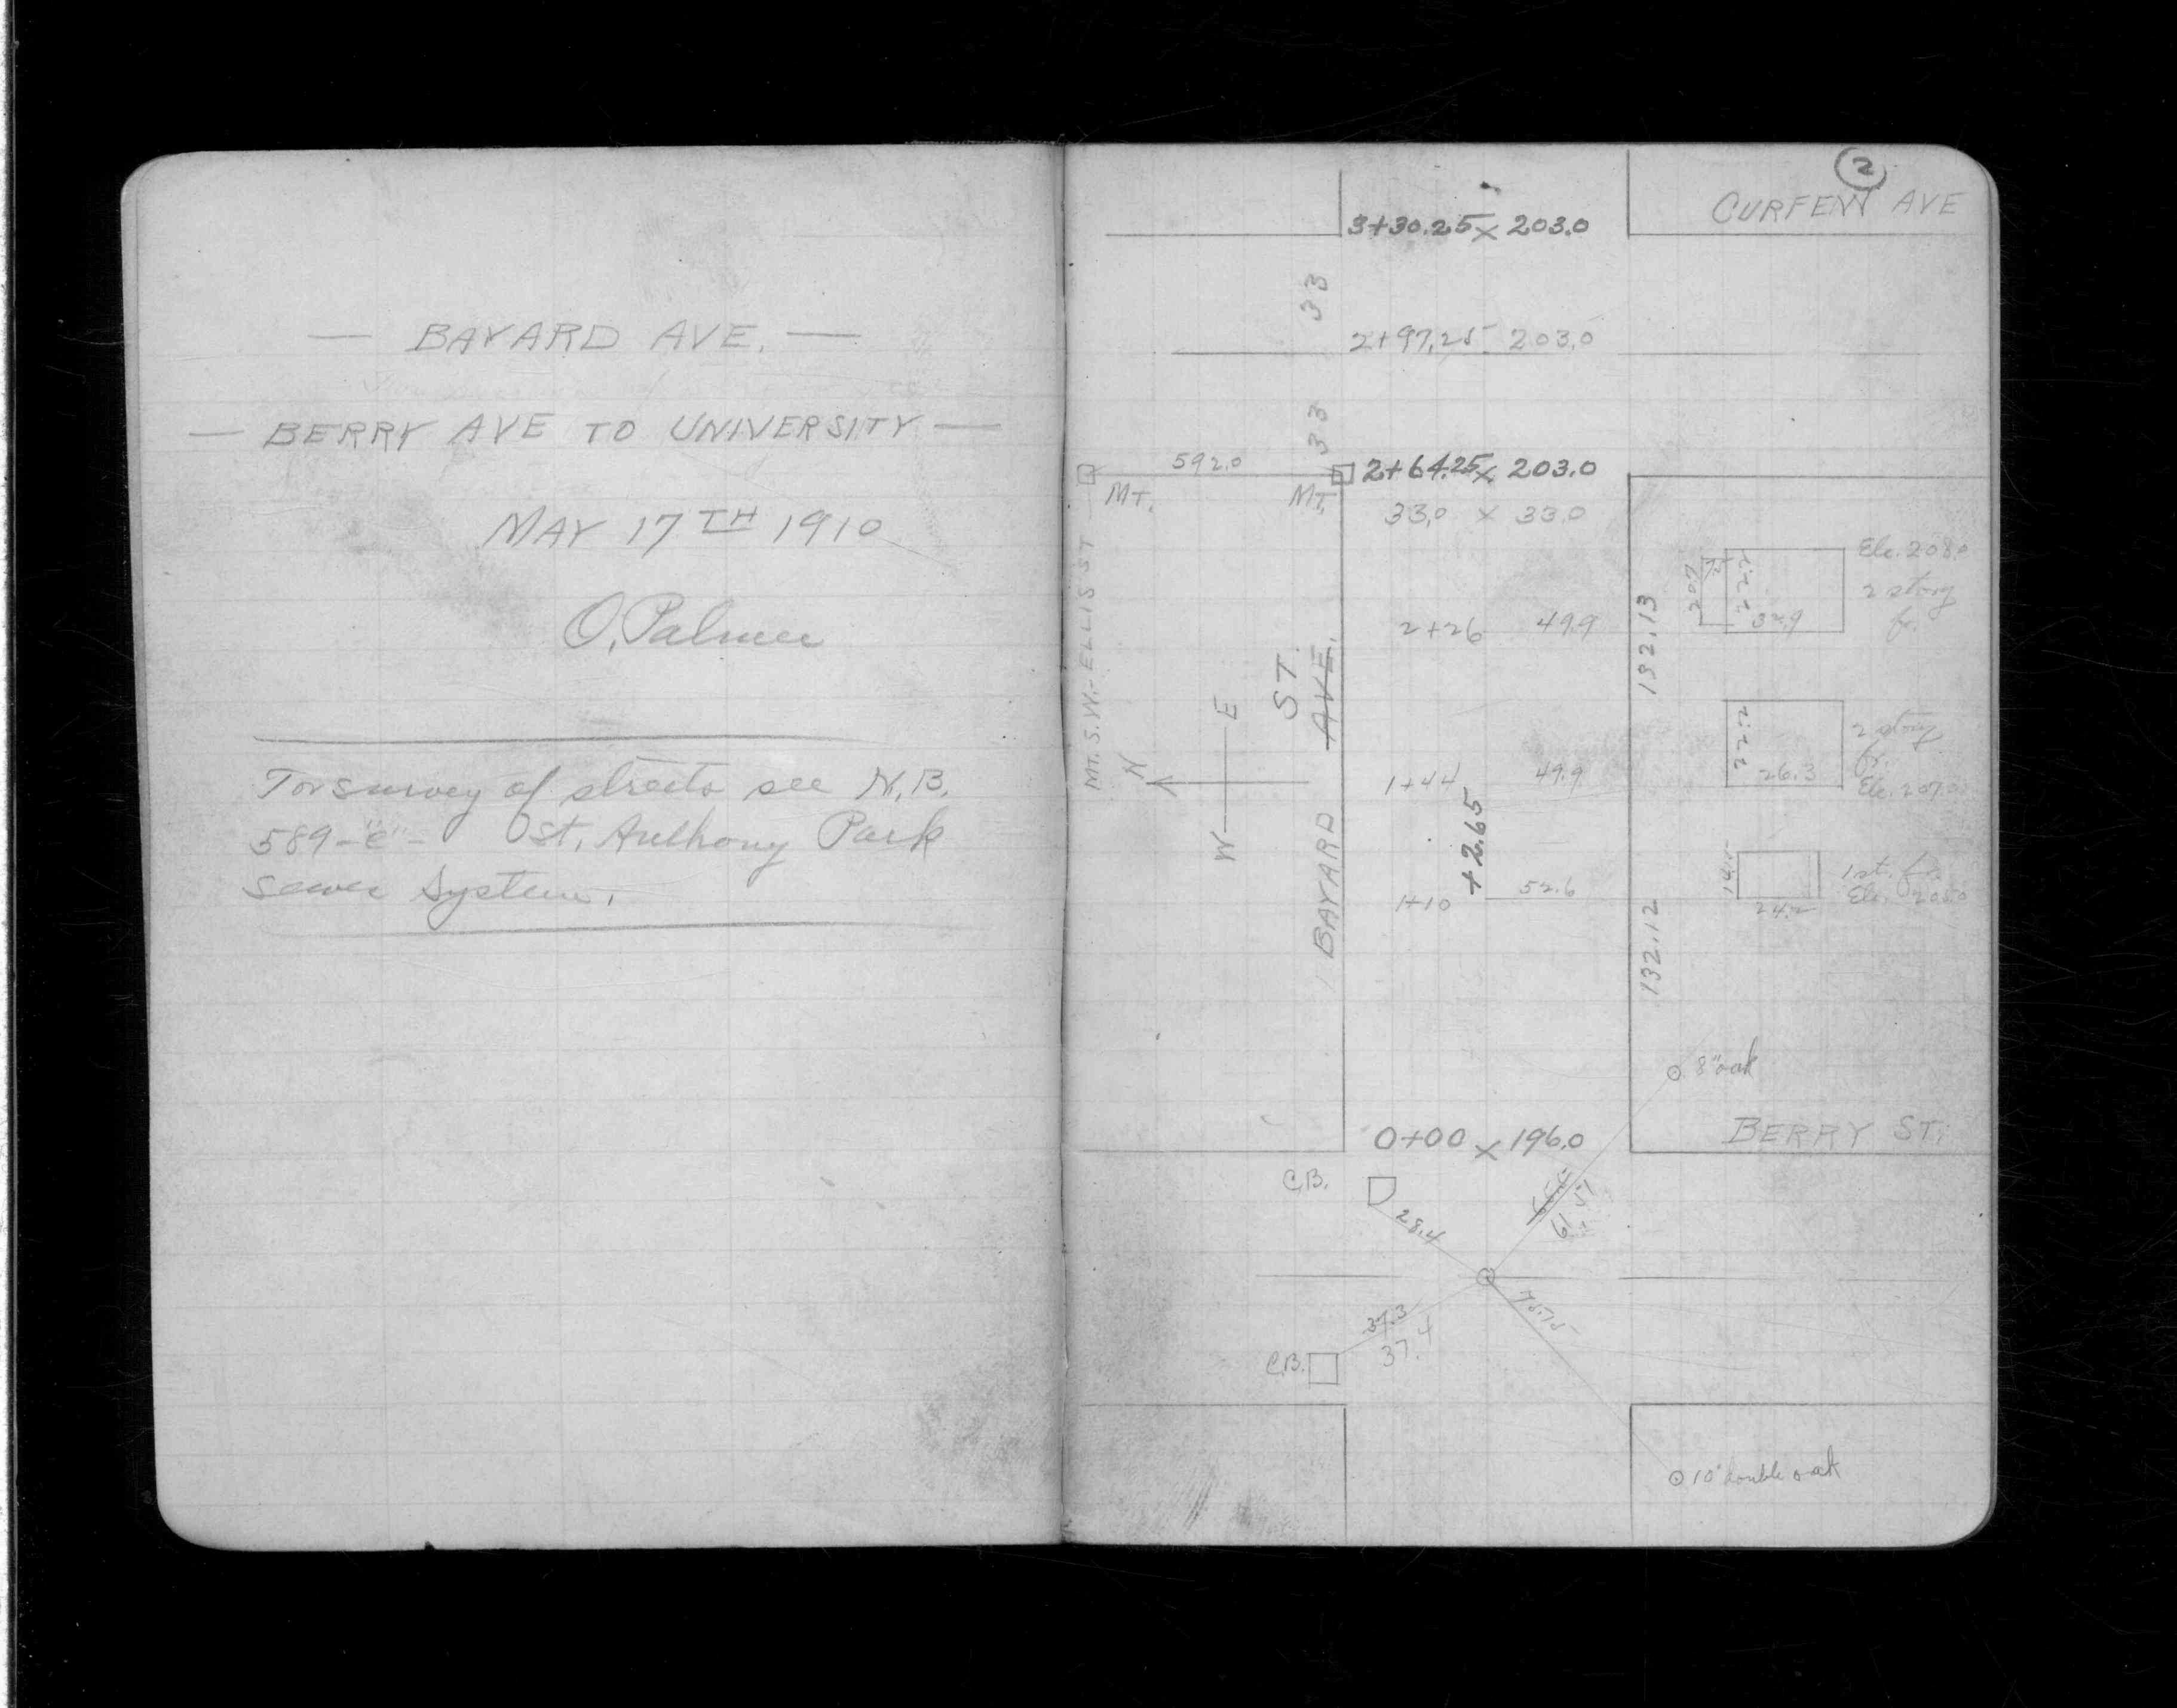 — BAYARD AVE. —
— BERRY AVE TO UNIVERSITY —
MAY 17TH 1910
O. Palmer
For survey of streets see N.B.
589-"C"- St. Anthony Park
Sewer System.
2
CURFEW AVE
3+30.25 x 203.0
33
2+97.25 203.0
33
592.0
2+64.25 x 203.0
MT.
MT.
33.0 x 33.0
MT. S.W.-ELLIS ST
Ele. 208.0
2 story
fr.
20.7
7.5
22.7
32.9
2+26 49.9
132.13
ST.
AVE.
BAYARD
N
E
W
22.2
26.3
2 story
fr.
Ele. 207.0
1+44 49.9
+2.65
1+10 52.6
24.2
1 st. fr.
Ele. 205.0
132.12
8" oak
0+00 x 196.0
BERRY ST.
C.B.
28.4
61.51
37.3
37.4
75.15
C.B.
10" double oak